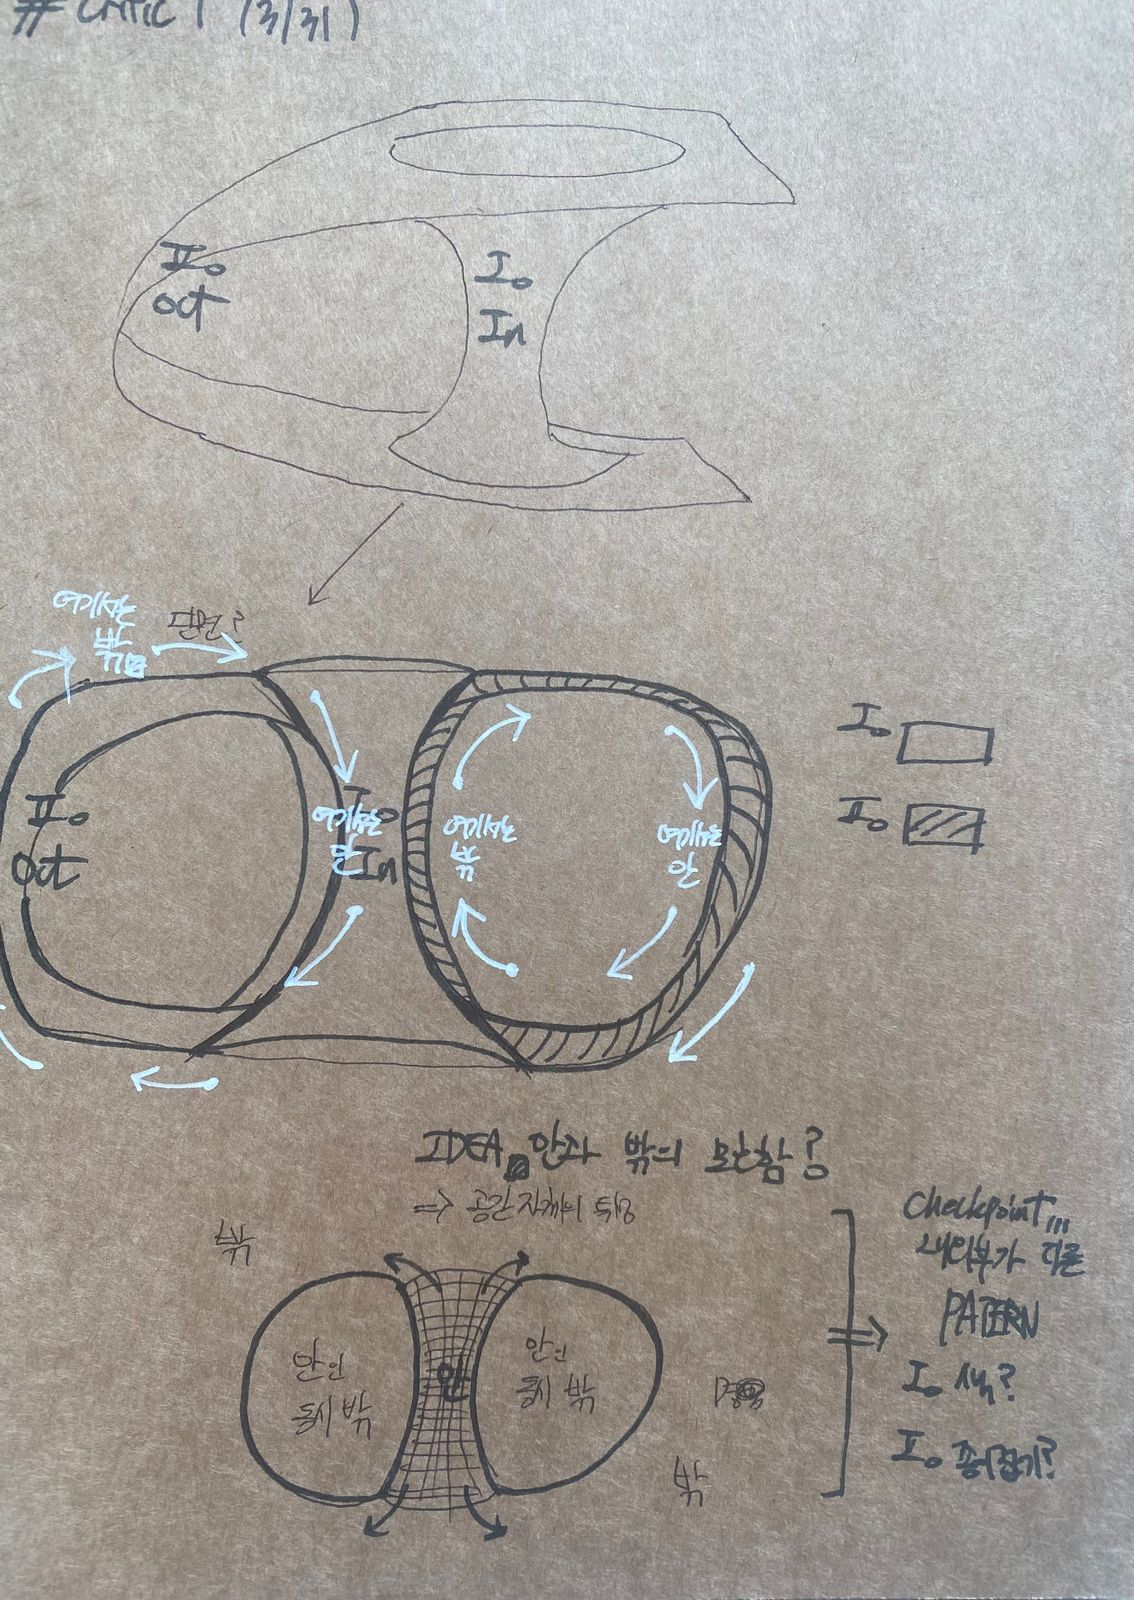 # CRITIC 1 (3/31)
II。
OCT
I。
In
여기서는
밖
단면?
II。
OCT
I。
In
여기서는
안
여기서는
밖
여기서는
안
I。
II。
IDEA 안과 밖의 모순함?
=> 공간 자체의
밖
안인
동시 밖
안
안인
동시 밖
밖
Checkpoint...
내외부가 다른
PATERN
I。 색?
II。 종이접기?